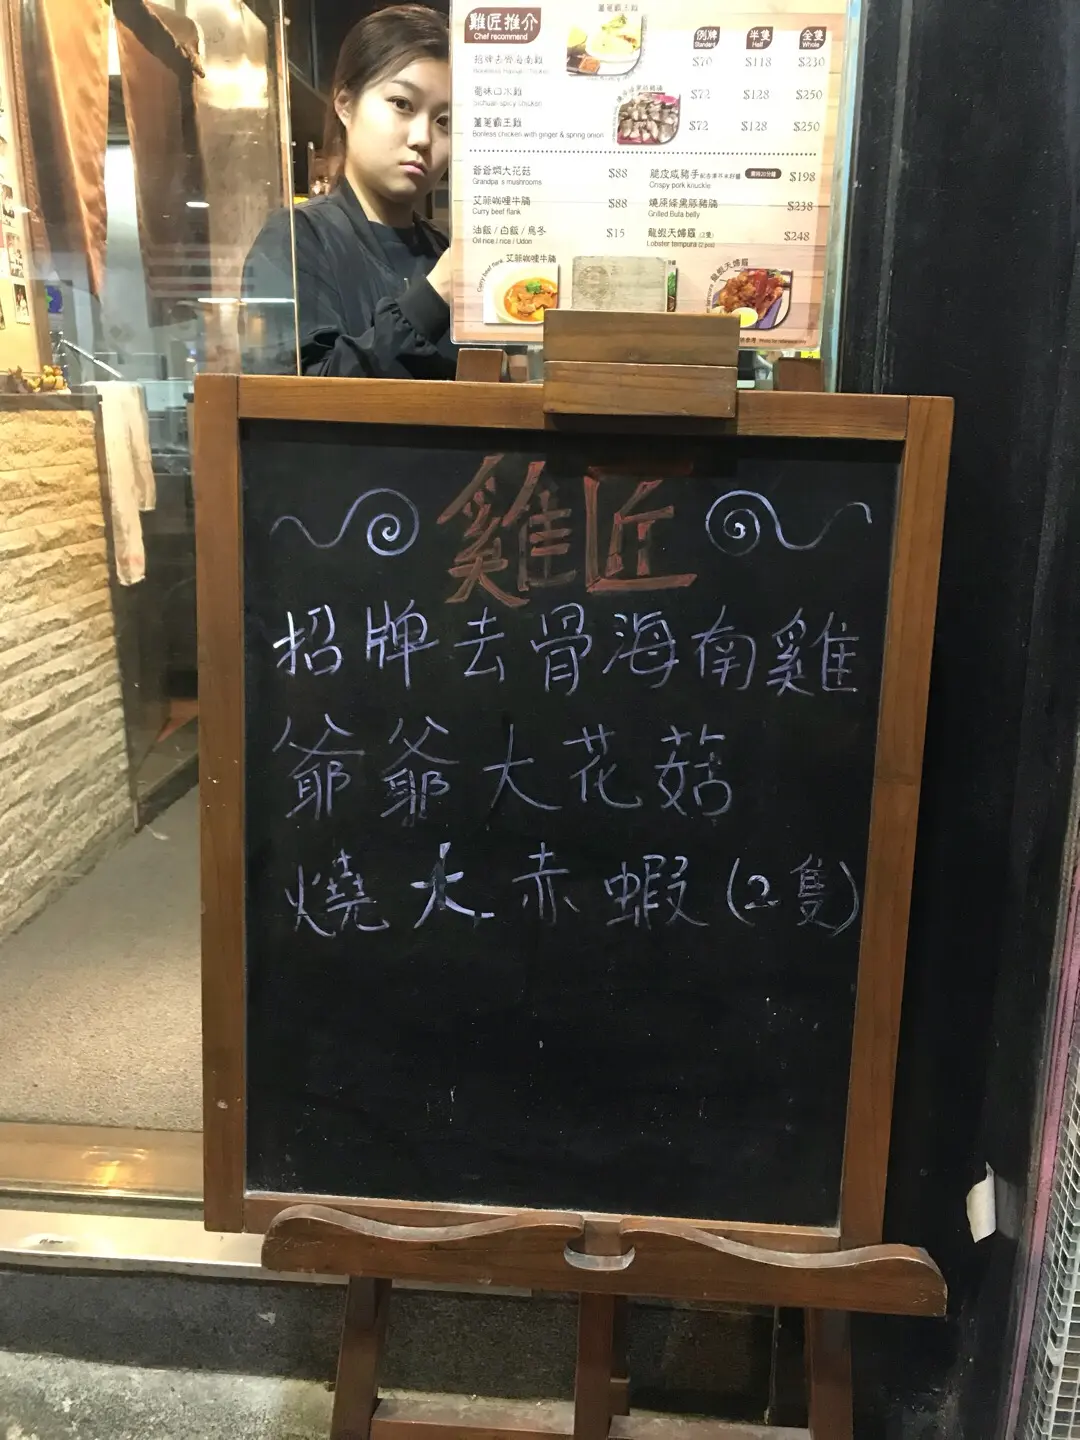 雞匠推介
Chef recommend
例牌 半隻 全隻
Standard Half Whole
招牌去骨海南雞 $70 $118 $230
蜀味口水雞 $72 $128 $250
Sichuan spicy chicken
薑蔥霸王雞 $72 $128 $250
Bonless chicken with ginger & spring onion
爺爺燜大花菇 $88
Grandpa's mushrooms
艾菲咖哩牛腩 $88
Curry beef flank
油飯 / 白飯 / 烏冬 $15
Oil rice / rice / Udon
脆皮咸豬手 $198
Crispy pork knuckle
燒原條黑豚豬腩 $238
Grilled Buta belly
龍蝦天婦羅 (2隻) $248
Lobster tempura (2 pcs)
艾菲咖哩牛腩
Curry beef flank
龍蝦天婦羅
雞匠
招牌去骨海南雞
爺爺大花菇
燒大赤蝦(2隻)